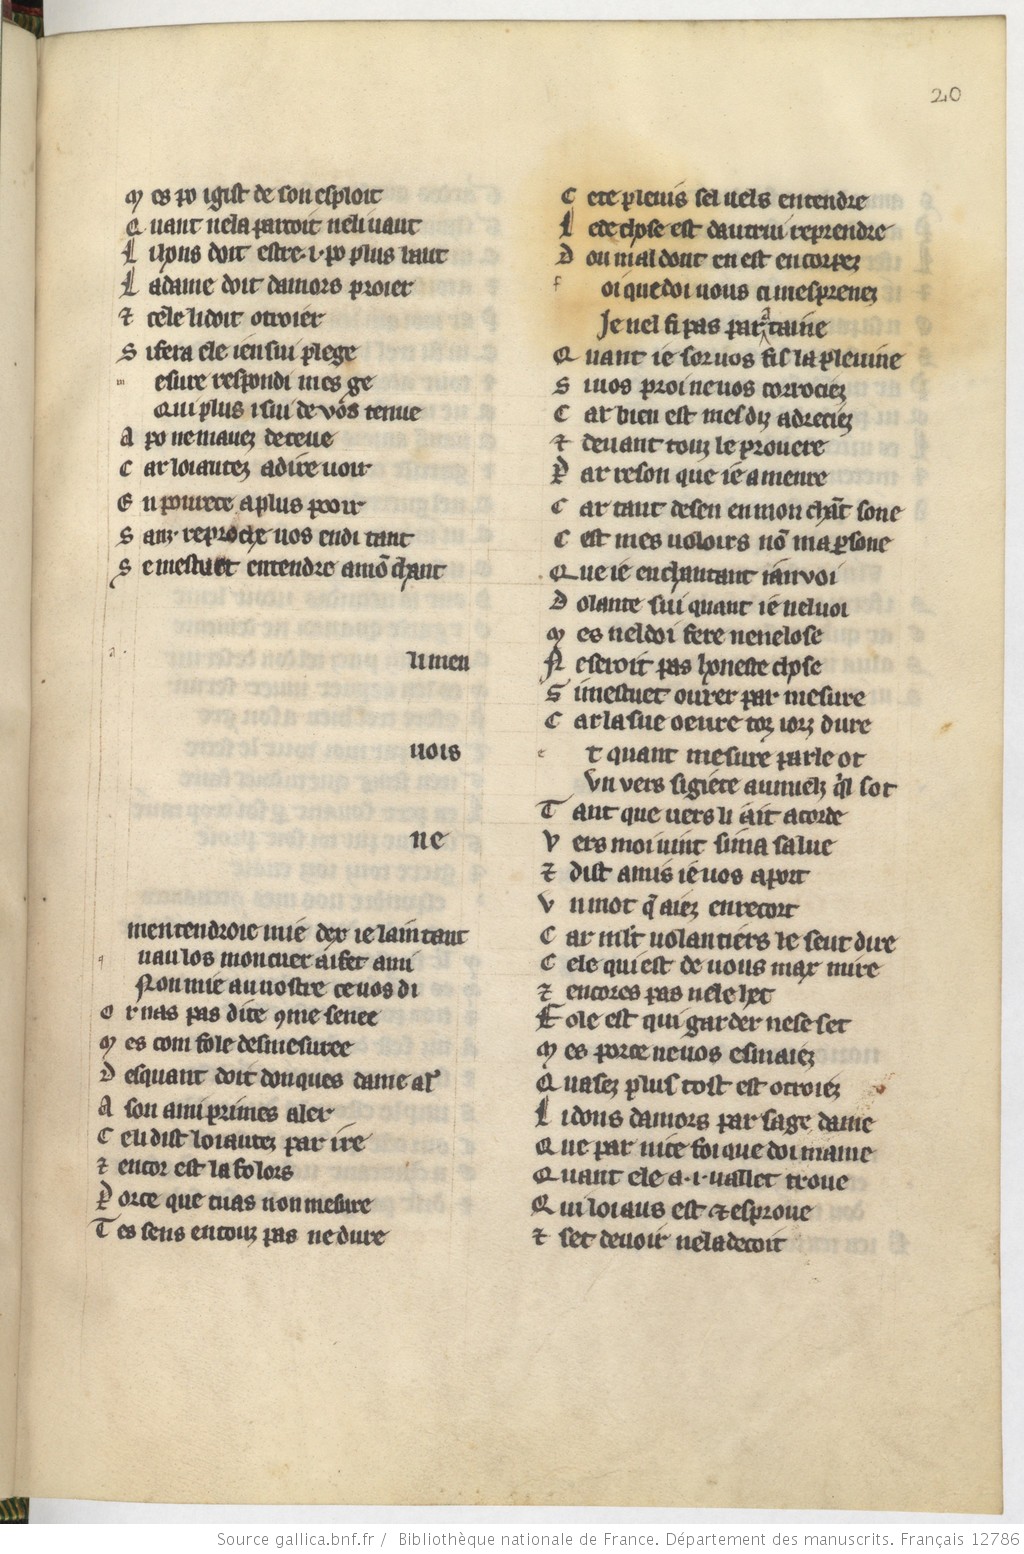 20
M es po igist de son esploit
Q uant nela parcoit neli uaut
L i hons doit estre .i. po plus haut
L a dame doit damors proier
⁊ cele li doit otroier
S i fera ele ien sui plege
m esure respondi mes ge
Qui plus i sui de vos tenue
A po ne mauez deceue
C ar loiautez a dire uoir
E n pourete a plus pooir
S anz reproche uos en di tant
S e mestuet entendre amō chant
a
li men
uois
ne
men tendroie mie dex ie laim tant
q uau los mon cuer ai fet ami
Non mie au uostre ce uos di
O r nas pas dite ꝯme senee
M es com fole desmesuree
D es quant doit donques dame al'
A son ami primes aler
C e li dist loiautez par ire
⁊ encor est la folors
P orce que tu as non mesure
T es sens en touz pas ne dure
C ete pleuis sel uels entendre
L ede chose est dautrui reprendre
D ou mal dont en est encorpez
f oi que doi uous ci mesprenez
Je nel fi pas par ataine
Q uant ie sor uos fis la pleuine
S iuos proi ne uos corrociez
C ar bien est mes diz adreciez
⁊ deuant touz le prouere
P ar reson que ie amenre
C ar tant desen en mon chāt sone
C est mes uoloirs nō ma ꝑsone
Que ie en chantant ianvoi
D olante sui quant ie nel uoi
M es nel doi fere ne nel ose
N e seroit pas honeste chose
S i mestuet ourer par mesure
C ar la sue oeure toz iorz dure
e t quant mesure parle ot
Vn vers sigiete au mielz q̄l sot
T ant que vers li ait acorde
V ers moi uint si ma salue
⁊ dist amis ie uos aport
V n mot q̄ aiez en recort
C ar mlt uolantiers le seut dire
C ele qui est de uous max mire
⁊ encores pas ne le het
F ole est qui garder ne se set
M es porce ne uos esmaiez
Q uasez plus tost est otroiez
L i dons damors par sage dame
Q ue par nice foi que doi mame
Q uant ele a .i. uallet troue
Q ui loiaus est ⁊ esproue
⁊ set deuoir nela decoit
Source gallica.bnf.fr / Bibliothèque nationale de France. Département des manuscrits. Français 12786